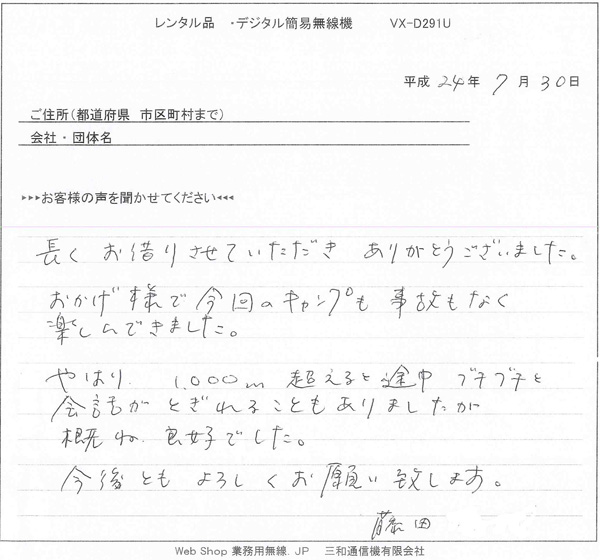 レンタル品 ・デジタル簡易無線機 VX-D291U
平成 24年 7月 30日
ご住所(都道府県 市区町村まで)
会社・団体名
▸▸▸お客様の声を聞かせてください◂◂◂
長く お借りさせていただき ありがとうございました。
おかげ様で今回のキャンプも 事故もなく
楽しんできました。
やはり、1,000m 超えると途中 ブチブチと
会話がとぎれることもありましたが
概ね、良好でした。
今後とも よろしくお願い致します。
藤田
Web Shop 業務用無線.JP 三和通信機有限会社